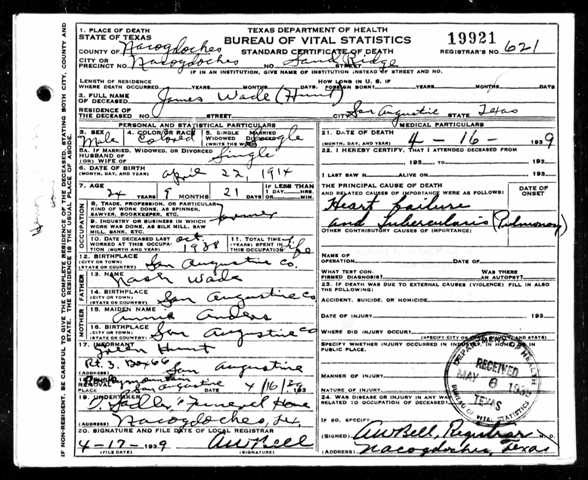 1. PLACE OF DEATH
STATE OF TEXAS
COUNTY OF Nacogdoches
CITY OR PRECINCT NO. Nacogdoches
TEXAS DEPARTMENT OF HEALTH
BUREAU OF VITAL STATISTICS
STANDARD CERTIFICATE OF DEATH
NO. Sand Ridge STREET
19921
REGISTRAR'S NO. 621
IF IN AN INSTITUTION, GIVE NAME OF INSTITUTION INSTEAD OF STREET AND NO.
LENGTH OF RESIDENCE
WHERE DEATH OCCURRED YEARS MONTHS DAYS FOREIGN BORN? YEARS MONTHS DAYS
2. FULL NAME OF DECEASED James Wade (Hunt)
RESIDENCE OF THE DECEASED NO. STREET CITY San Augustine Texas
PERSONAL AND STATISTICAL PARTICULARS
3. SEX Male
4. COLOR OR RACE Colored
5. SINGLE MARRIED WIDOWED DIVORCED (WRITE THE WORD) Single
6A. IF MARRIED, WIDOWED, OR DIVORCED
HUSBAND OF (OR) WIFE OF Single
6. DATE OF BIRTH (MONTH, DAY, AND YEAR) April 22, 1914
7. AGE 24 YEARS 9 MONTHS 21 DAYS IF LESS THAN 1 DAY HRS. MIN.
8. TRADE, PROFESSION, OR PARTICULAR KIND OF WORK DONE, AS SPINNER, SAWYER, BOOKKEEPER, ETC. farmer
9. INDUSTRY OR BUSINESS IN WHICH WORK WAS DONE, AS SILK MILL, SAW MILL, BANK, ETC.
10. DATE DECEASED LAST WORKED AT THIS OCCUPATION (MONTH AND YEAR) Oct 1938
11. TOTAL TIME (YEARS) SPENT IN THIS OCCUPATION life
12. BIRTHPLACE (CITY OR TOWN) (STATE OR COUNTRY) San Augustine Co.
FATHER
13. NAME Nash Wade
14. BIRTHPLACE (CITY OR TOWN) (STATE OR COUNTRY) San Augustine Co
MOTHER
15. MAIDEN NAME Annie
16. BIRTHPLACE (CITY OR TOWN) (STATE OR COUNTRY) San Augustine Co
17. INFORMANT Hunt
(ADDRESS) Rt. 3. Box 66 San Augustine
18. REMOVAL PLACE San Augustine 4/16/39
19. UNDERTAKER Funeral Home
(ADDRESS) Nacogdoches, Tex
20. SIGNATURE AND FILE DATE OF LOCAL REGISTRAR
4-17-1939 AWBell
(FILE DATE) (SIGNATURE)
MEDICAL PARTICULARS
21. DATE OF DEATH (MONTH, DAY, AND YEAR) 4-16-1939
22. I HEREBY CERTIFY, THAT I ATTENDED DECEASED FROM
193 TO 193
I LAST SAW H ALIVE ON 193
THE PRINCIPAL CAUSE OF DEATH AND RELATED CAUSES OF IMPORTANCE WERE AS FOLLOWS:
DATE OF ONSET
Heart failure
and Tubercularis (Pulmonary)
OTHER CONTRIBUTORY CAUSES OF IMPORTANCE:
NAME OF OPERATION DATE OF
WHAT TEST CONFIRMED DIAGNOSIS? WAS THERE AN AUTOPSY?
23. IF DEATH WAS DUE TO EXTERNAL CAUSES (VIOLENCE) FILL IN ALSO THE FOLLOWING:
ACCIDENT, SUICIDE, OR HOMICIDE?
DATE OF INJURY 193
WHERE DID INJURY OCCUR?
SPECIFY WHETHER INJURY OCCURRED IN INDUSTRY, IN HOME, OR IN PUBLIC PLACE.
MANNER OF INJURY
NATURE OF INJURY
24. WAS DISEASE OR INJURY IN ANY WAY RELATED TO OCCUPATION OF DECEASED?
IF SO, SPECIFY
(SIGNED) AWBell, Registrar
(ADDRESS) Nacogdoches, Texas
DEPARTMENT OF HEALTH
RECEIVED
MAY 8 1939
TEXAS
BUREAU OF VITAL STATISTICS